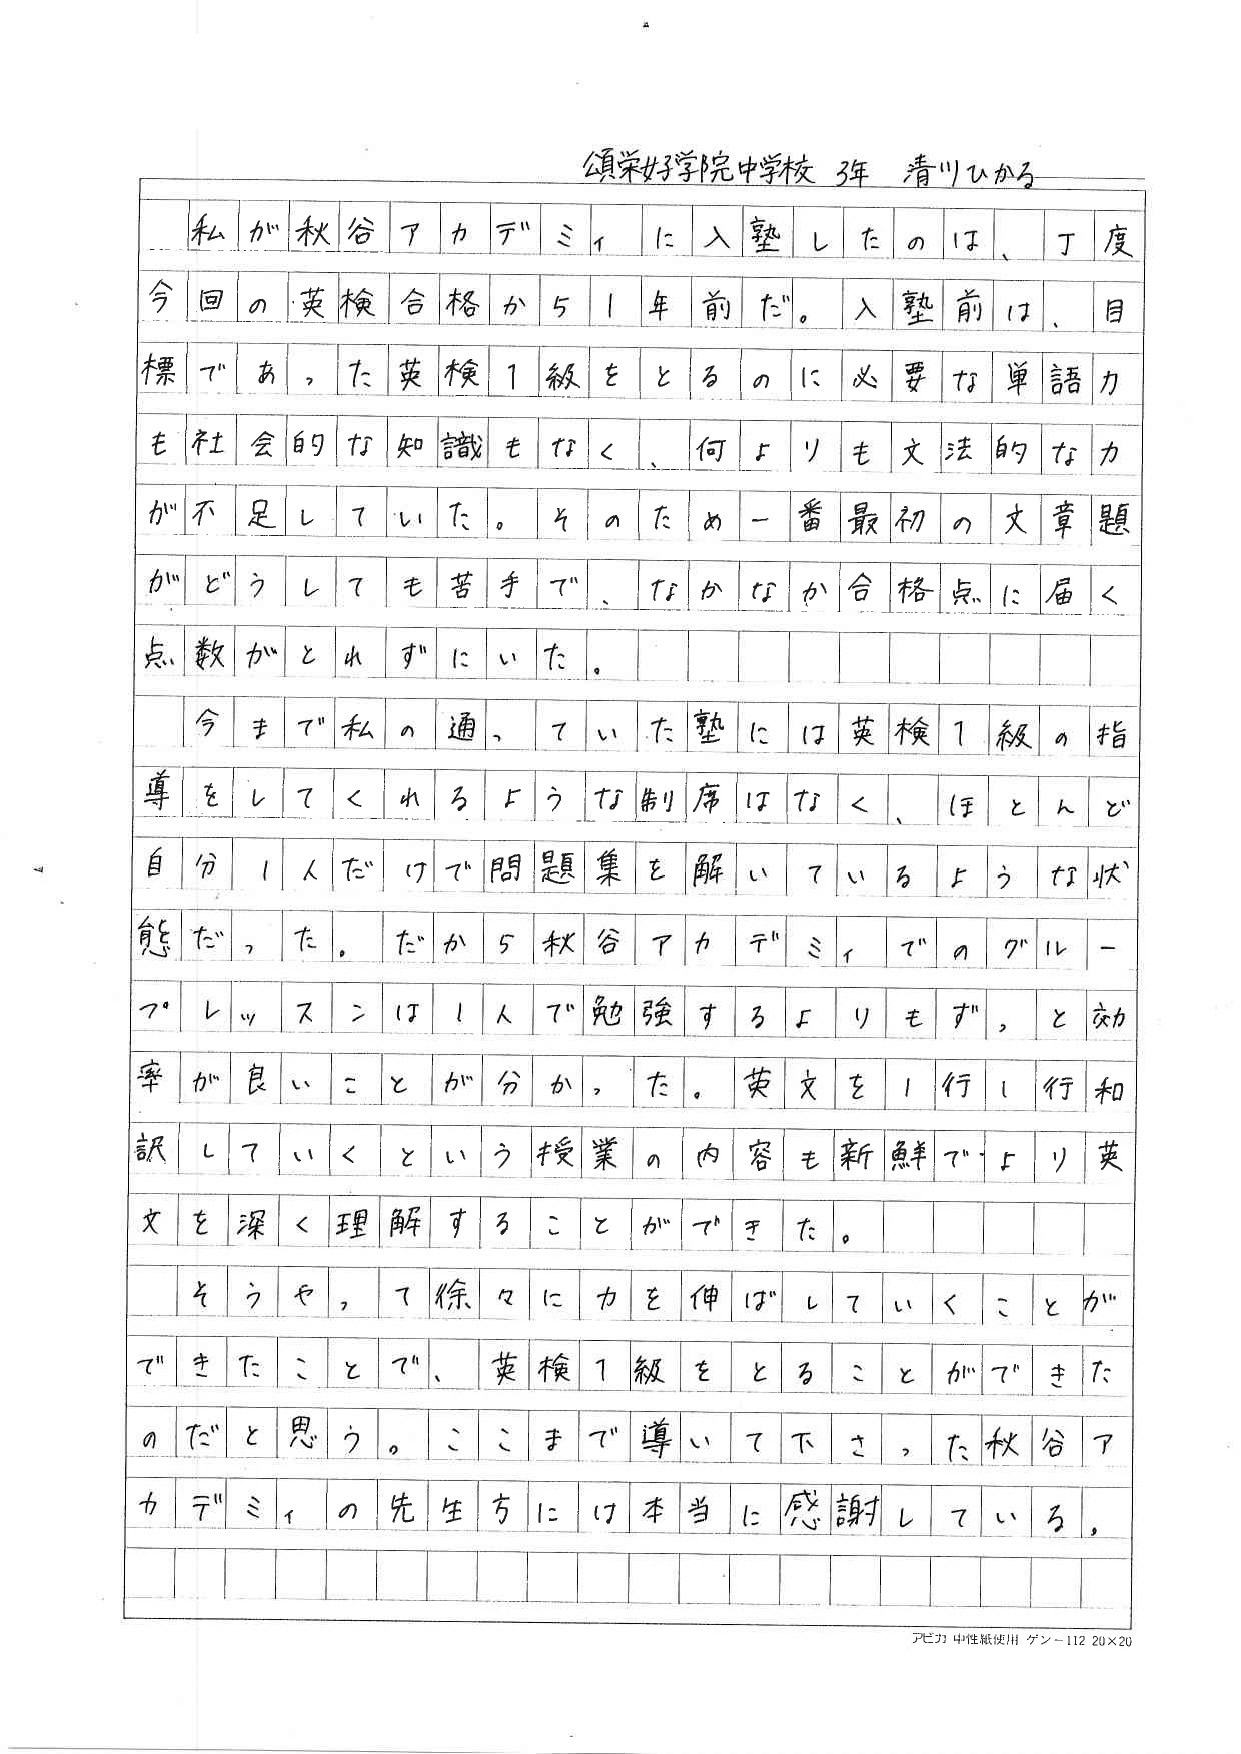 頌栄女子学院中学校 3年 清川ひかる
私が秋谷アカデミィに入塾したのは、丁度
今回の英検合格から1年前だ。入塾前は、目
標であった英検1級をとるのに必要な単語力
も社会的な知識もなく、何よりも文法的な力
が不足していた。そのため一番最初の文章題
がどうしても苦手で、なかなか合格点に届く
点数がとれずにいた。
今まで私の通っていた塾には英検1級の指
導をしてくれるような制席はなく、ほとんど
自分1人だけで問題集を解いているような状
態だった。だから秋谷アカデミィでのグルー
プレッスンは1人で勉強するよりもずっと効
率が良いことが分かった。英文を1行1行和
訳していくという授業の内容も新鮮でより英
文を深く理解することができた。
そうやって徐々に力を伸ばしていくことが
できたことで、英検1級をとることができた
のだと思う。ここまで導いて下さった秋谷ア
カデミィの先生方には本当に感謝している。
アピカ 中性紙使用 ゲンー112 20×20